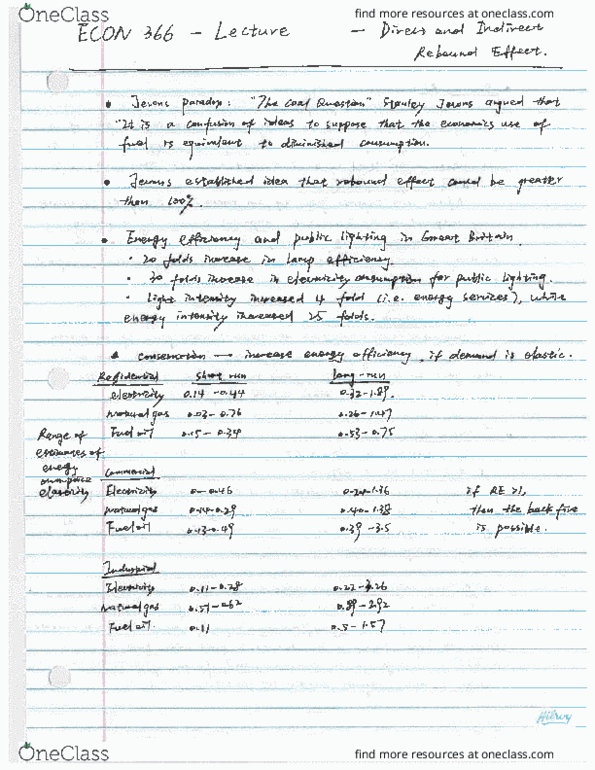 OneClass
find more resources at oneclass.com
ECON 366 - Lecture - Direct and Indirect
Rebound Effect.
• Jevons paradox: "The Coal Question" Stanley Jevons argued that
"It is a confusion of ideas to suppose that the economics use of
fuel is equivalent to diminished consumption.
• Jevons established idea that rebound effect could be greater
than 100%.
• Energy efficiency and public lighting in Great Britain.
· 20 folds increase in lamp efficiency.
· 30 folds increase in electricity consumption for public lighting.
· Light intensity increased 4 fold (i.e. energy services), while
energy intensity increased 25 folds.
conservation → increase energy efficiency, if demand is elastic.
Residential short run long-run
electricity 0.14 - 0.44 0.32 - 1.89
Natural gas 0.03 - 0.76 0.26 -
Range of Fuel oil 0.15 - 0.34 0.53 - 0.75
estimates of
energy Commercial
own price
elasticity Electricity 0 - 0.46 0.24 - 1.36 if RE >1,
Natural gas 0.14 - 0.29 0.40 - 1.38 then the back fire
Fuel oil 0.13 - 0.49 0.39 - 3.5 is possible.
Industrial
Electricity 0.11 - 0.28 0.22 -
Natural gas 0.51 - 0.62 0.89 - 2.92
Fuel oil 0.11 0.5 - 1.57
OneClass
find more resources at oneclass.com